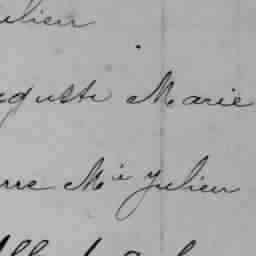 ulien
guste Marie
rre Mie Julien